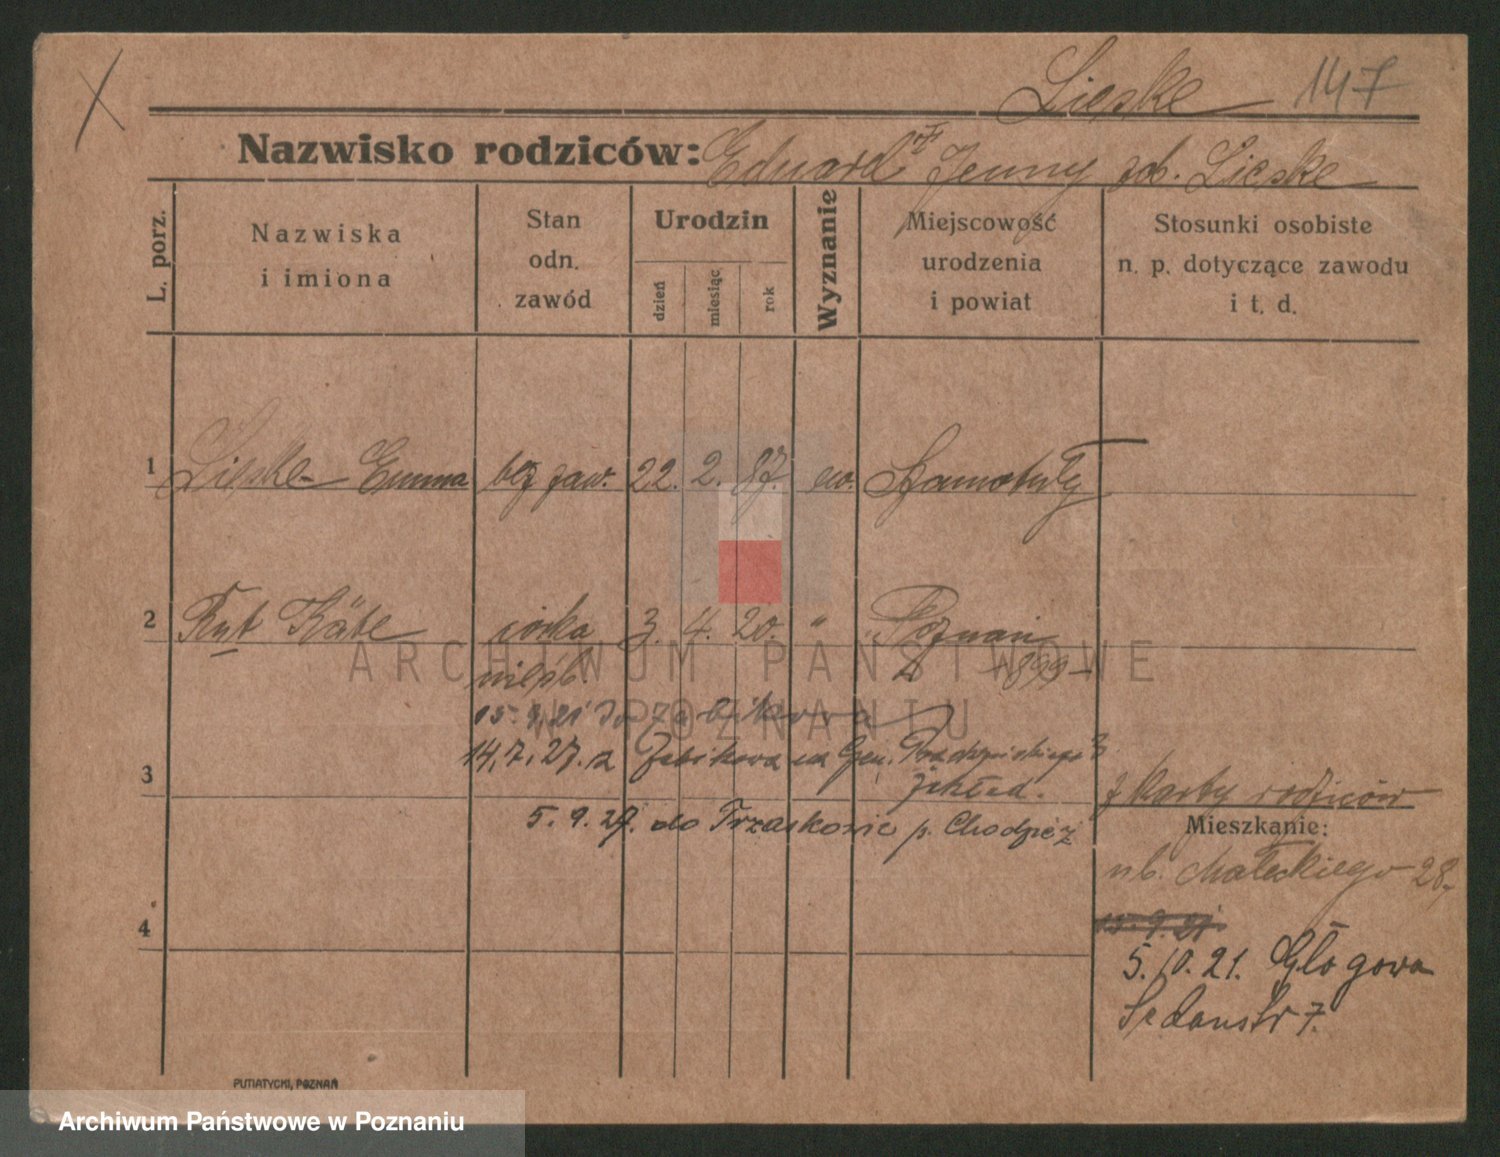 Lieske 147
Nazwisko rodziców: Eduard Jenny zd. Lieske
L. porz.
Nazwiska
i imiona
Stan
odn.
zawód
Urodzin
dzień
miesiąc
rok
Wyznanie
Miejscowość
urodzenia
i powiat
Stosunki osobiste
n. p. dotyczące zawodu
i t. d.
1 Lieske Emma bez zaw. 22. 2. 87. ew. Szamotuły
2 Rut Käte córka 3. 4. 20. " Poznań
nieśl. 899
15. 9. 21 do Żabikowa
14. 7. 27. z Żabikowa na Gen. Prądzyńskiego 3
3 zakład. z karty rodziców
5. 9. 29. do Trzaskowic p. Chodzież
Mieszkanie:
ub. Małeckiego 28,
15. 9. 21
4
5. 10. 21. Głogowa
Sedanstr 7.
PUTIATYCKI, POZNAŃ
ARCHIWUM PAŃSTWOWE
W POZNANIU
Archiwum Państwowe w Poznaniu